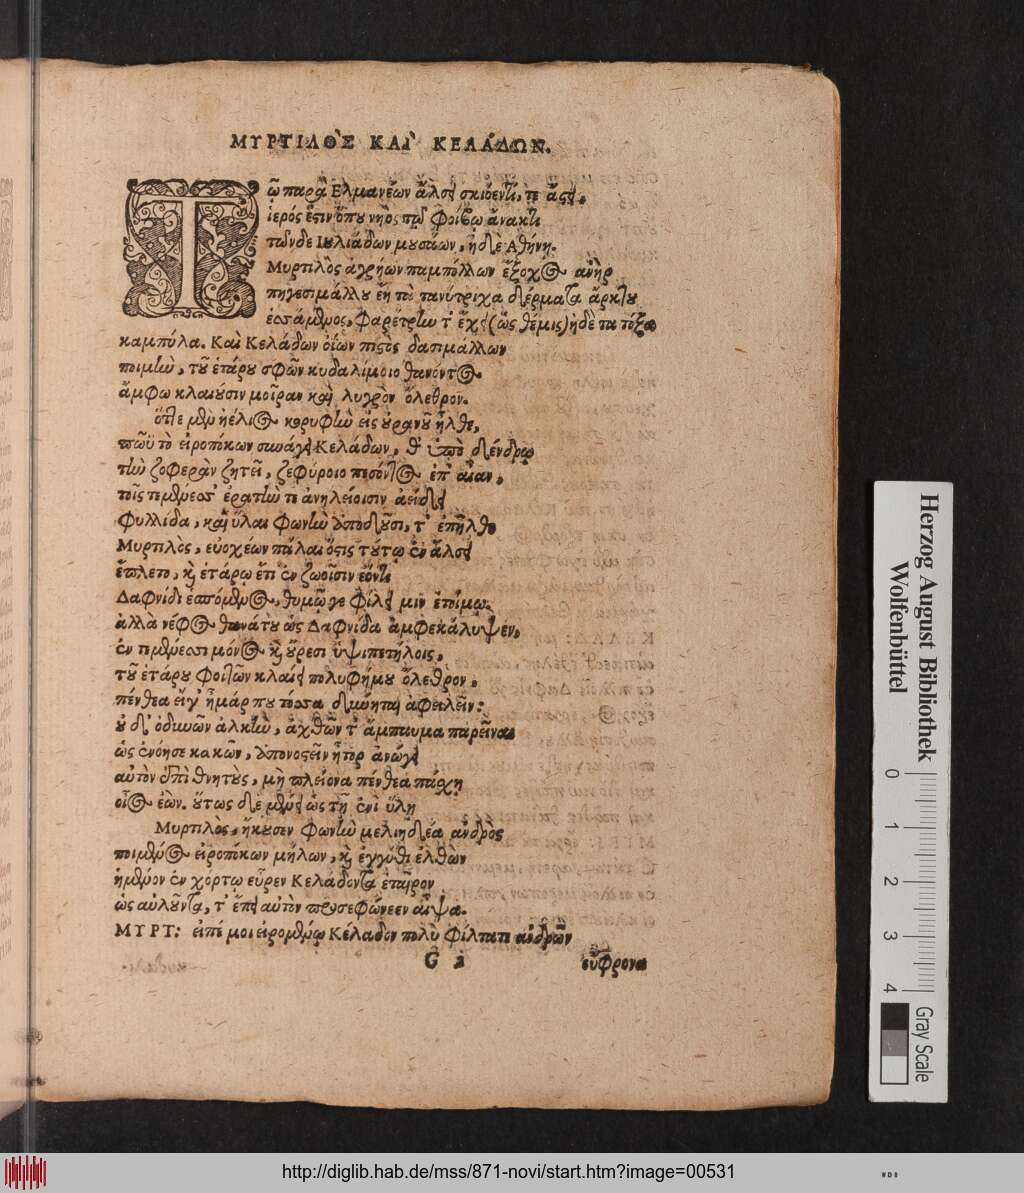 ΜΥΡΤΙΛῸΣ ΚΑῚ ΚΕΛΆΔΩΝ.
Τῶ παρὰ Ἑλμανέων ἄλσει σκιόεντι, τε ἄσει,
ἱερός ἐστιν ὅπου νηὸς τῷ Φοίβῳ ἄνακτι
τῶνδε Ιουλιάδων μουσάων, ἠδὲ Αθήνη.
Μυρτιλὸς ἀγρήων παμπόλλων ἔξοχος ἀνὴρ
πηγεσιμάλλου ἔη τοὶ τανύτριχα δέρματα ἄρκτου
ἑσσάμενος, Φαρέτρην τ' ἔχει (ὡς θέμις) ἠδὲ τα τόξα
καμπύλα. Καὶ Κελάδων ὀΐων πιστὸς δασιμάλλων
ποιμὴν, τοῦ ἑτάρου σφῶν κυδαλίμοιο θανόντος
ἄμφω κλαιουσιν μοῖραν καὶ λυγρὸν ὄλεθρον.
ὅτε μὲν ἠέλιος κορυφὴν εἰς οὐρανοῦ ἦλθε,
πῶϋ τὸ εἰροπόκων συνάγει Κελάδων, θ' ὑπὸ δένδρῳ
τὴν ζοφερὰν ζητεῖ, ζεφύροιο πεσόντος ἐπ' αἶαν,
τοῖς τεμένεσσ' ἐρατὴν τε ἀνηλείοισιν ἀείδει
Φυλλίδα, καὶ ὕλαι φωνὴν ὑποδοῦσι, τ' ἐπῆλθε
Μυρτιλὸς, εὐοχέων πάλαι ὅστις τούτῳ ἐν ἄλσει
ἔπλετο, καὶ ἑτάρῳ ἔτι ἐν ζωοῖσιν ἐόντι
Δαφνίδι ἑσπόμενος, θυμῷ γε φίλει μιν ἑτοίμῳ.
ἀλλὰ νέφος θανάτου ὡς Δαφνίδα ἀμφεκάλυψεν,
ἐν τεμένεσσι μόνος καὶ οὔρεσι ὑψιπετήλοις,
τοῦ ἑτάρου φοιτῶν κλαίει πολυφήμου ὄλεθρον,
πένθεα εἴγ' ἦμάρ που τόσσα δύνηται ἀφελεῖν:
ὁ δ' ὀδυνῶν ἀλκὴν, ἀχθῶν τ' ἄμπαυμα παρεῖναι
ὡς ἐνόησε κακῶν, ὑπονοστεῖν ἦτορ ἀνώγει
αὐτὸν ἐπὶ θνητοὺς, μὴ πλείονα πένθεα πάσχῃ
οἶος ἐὼν. οὕτως δὲ μένει ὡς τῇ ἐνὶ ὕλῃ
Μυρτιλὸς, ἤκουσεν φωνὴν μελιηδέα ἀνδρὸς
ποιμένος εἰροπόκων μήλων, καὶ ἐγγύθι ἐλθὼν
ἥμενον ἐν χόρτῳ εὗρεν Κελάδοντα ἑταῖρον
ὡς αὐλοῦντα, τ' ἔπει αὐτὸν προσεφώνεεν αἶψα.
ΜΥΡΤ: εἰπέ μοι εἰρομένῳ Κέλαδον πολὺ φίλτατε ἀνδρῶν
G 2 εὔφρονα
Herzog August Bibliothek
Wolfenbüttel
0 1 2 3 4
Gray Scale
http://diglib.hab.de/mss/871-novi/start.htm?image=00531